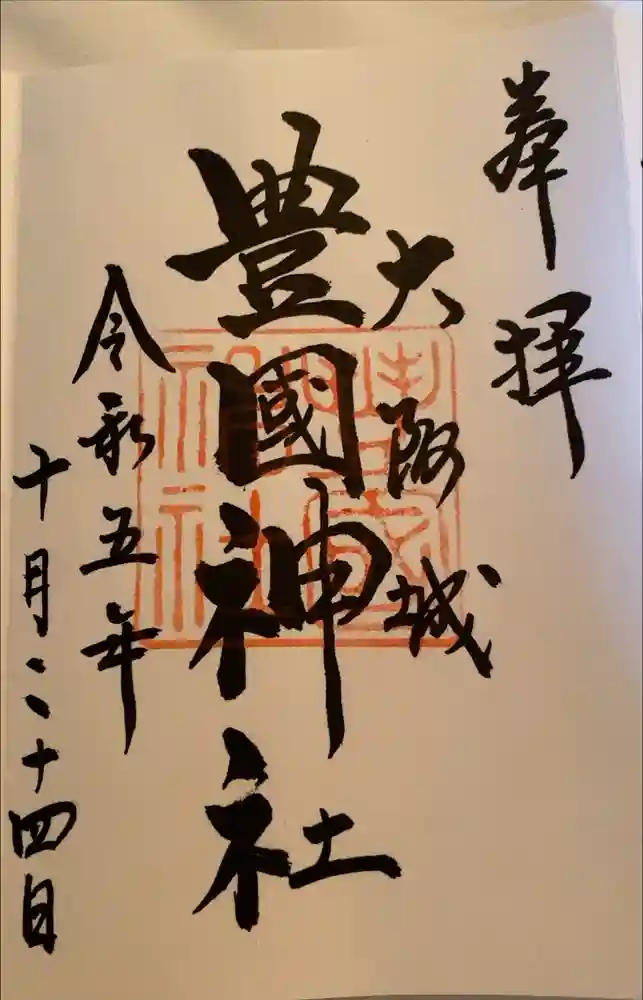 奉拝
大阪城
豊國神社
令和五年
十月二十四日